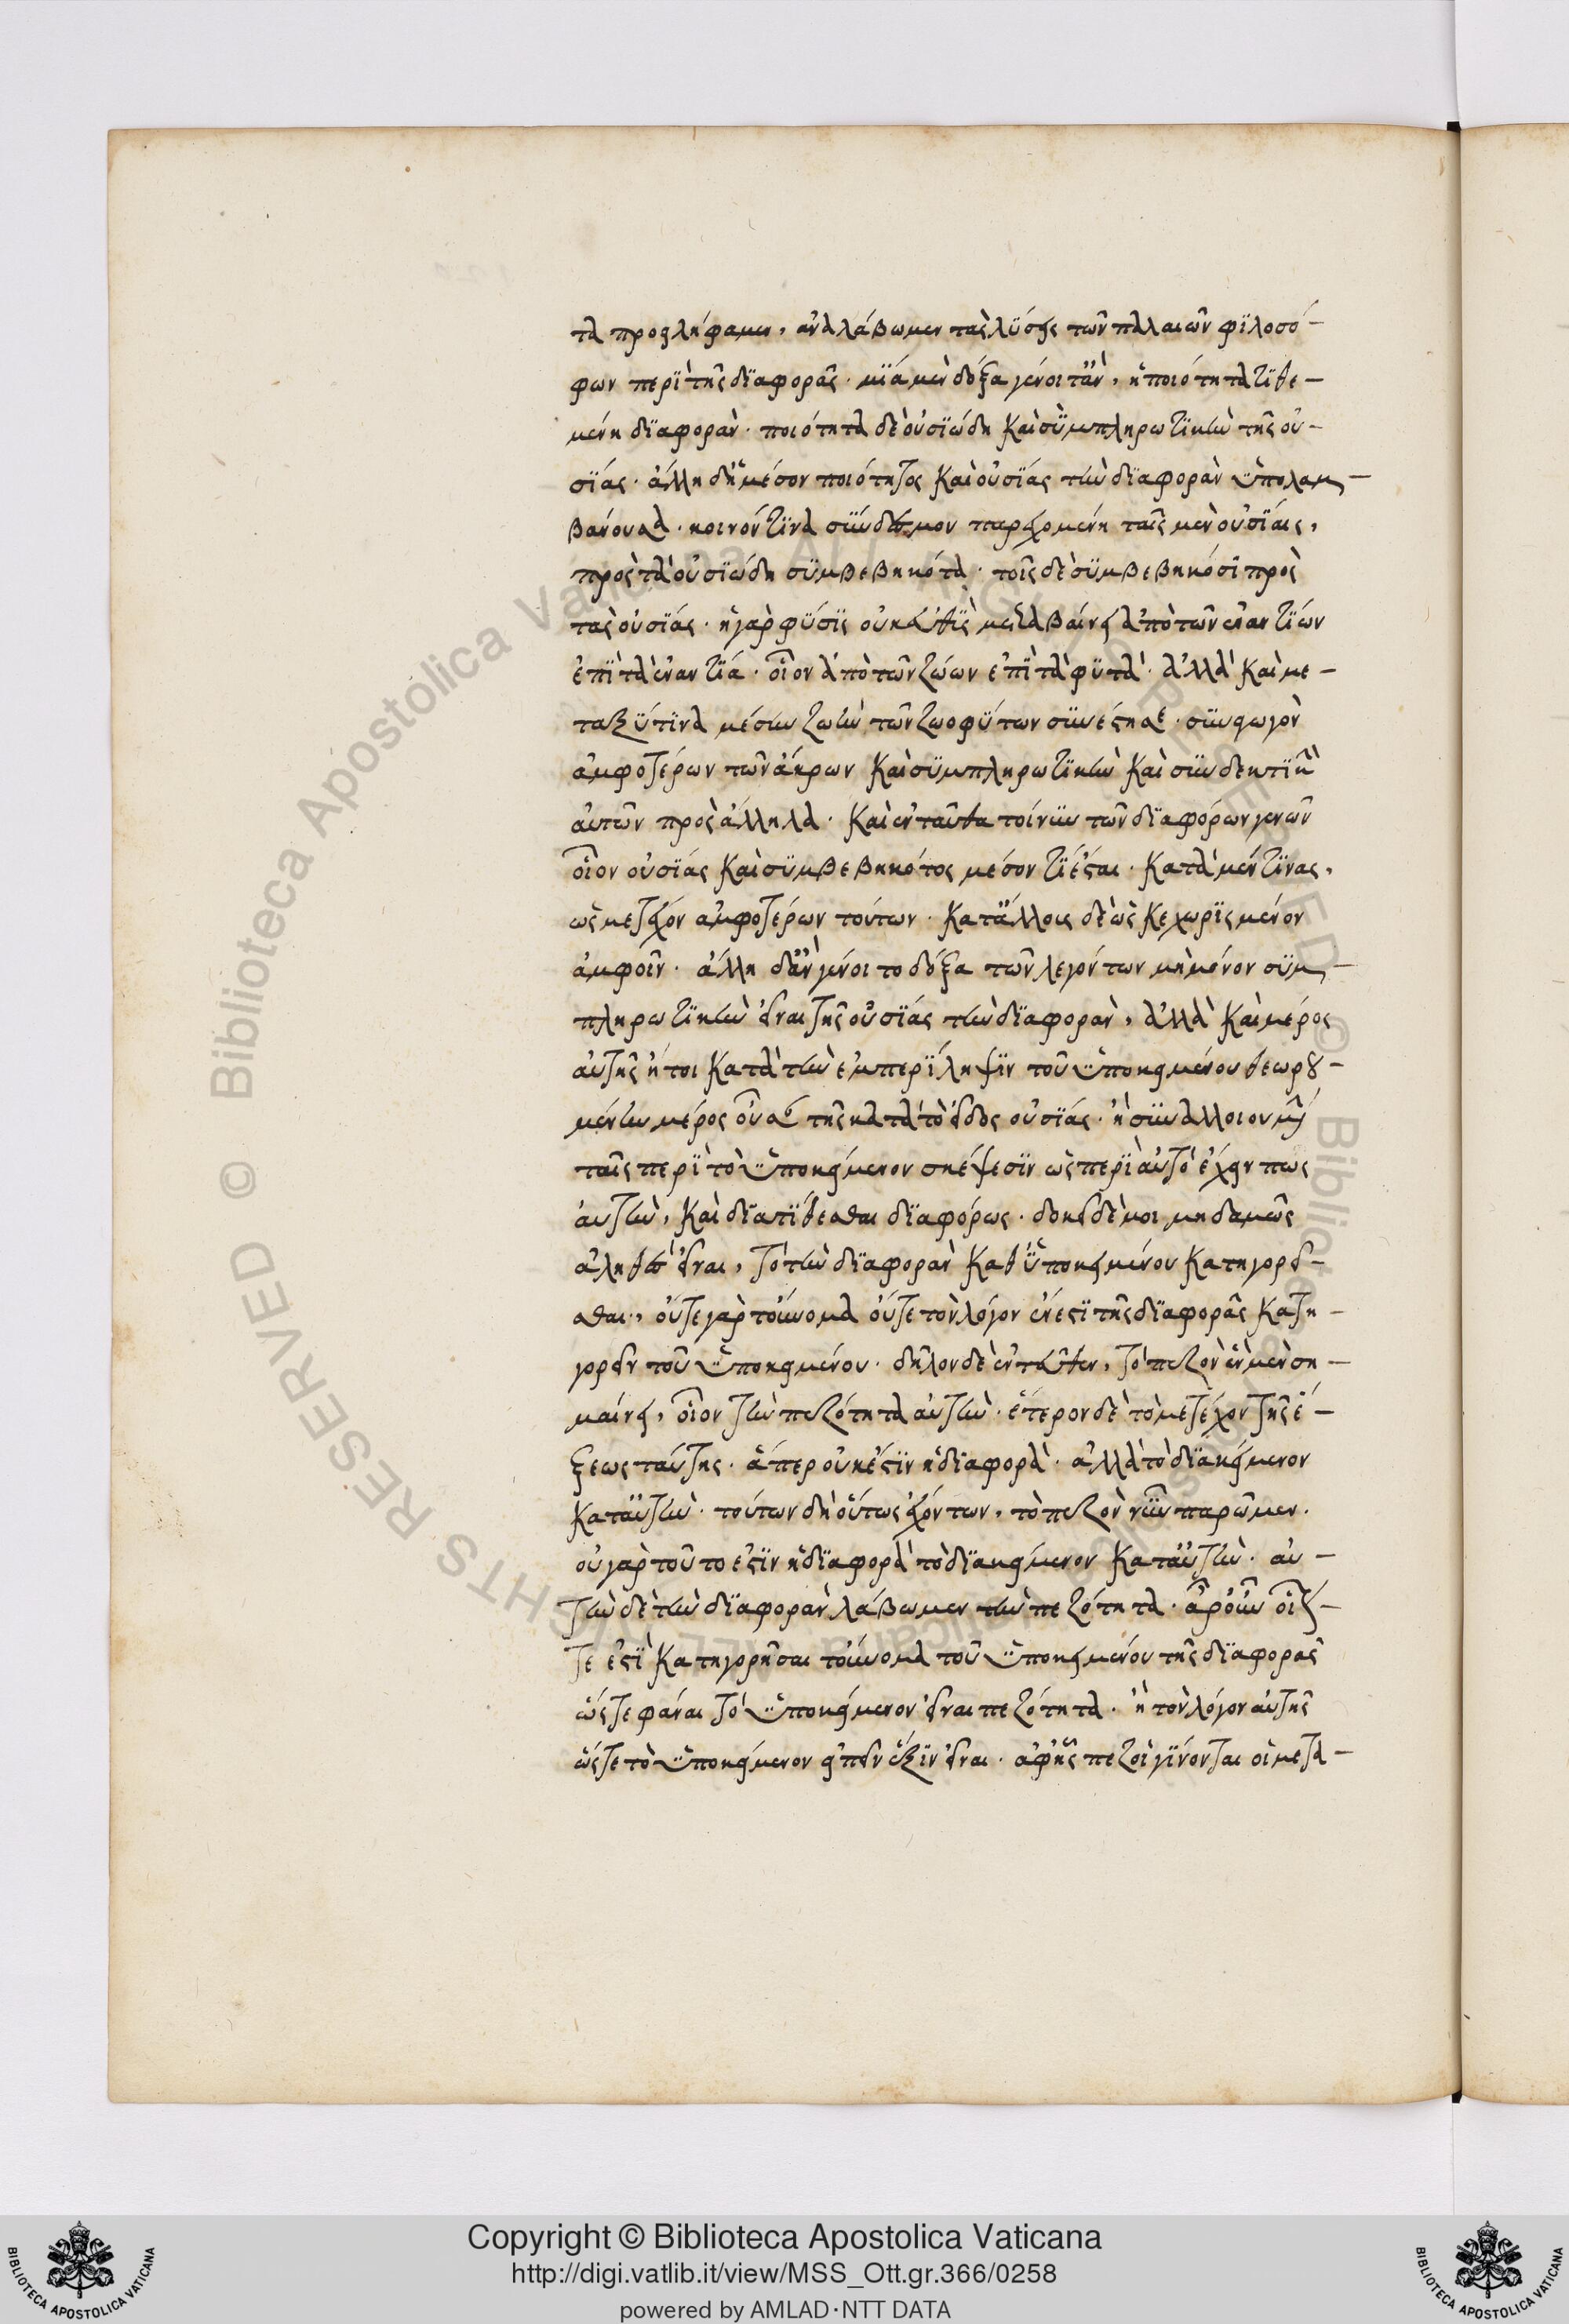 τα προσλήφαμεν, ἀναλάβωμεν τὰς λύσεις τῶν παλαιῶν φϊλοσό-
φων περὶ τῆς δϊαφορᾶς. μϊὰ μὲν δόξα γένοιτ' ἂν, ἡ ποιότητα τϊθε-
μένη δϊαφορὰν. ποιότητα δὲ οὐσϊώδη καὶ συμπληρωτϊκὴν τῆς οὐ-
σϊάς. ἄλλη δὴ μέσον ποιότητος καὶ οὐσϊάς τὴν δϊαφορὰν ὑπολαμ-
βάνουσα. κοινόν τϊνα σύνδεσμον παρεχομένη ταῖς μὲν οὐσϊάις,
πρὸς τὰ οὐσϊώδη συμβεβηκότα. τοῖς δὲ συμβεβηκόσϊ πρὸς
τὰς οὐσϊάς. ἡ γὰρ φύσϊς οὐκ εὐθῒς μεταβαίνει ἀπὸ τῶν ἐναντϊών
ἐπῒ τὰ ἐναντϊά. οἷον ἀπὸ τῶν ζώων ἐπῒ τὰ φυτὰ. ἀλλὰ καὶ με-
ταξύ τϊνα μέσην ζωὴν τῶν ζωοφύτων συνέστησε. συναγωγὸν
ἀμφοτέρων τῶν ἄκρων καὶ συμπληρωτϊκὴν καὶ συνδεκτϊκὴ
αὐτῶν πρὸς ἄλληλα. καὶ ἐνταῦθα τοίνυν τῶν δϊαφόρων γενῶν
οἷον οὐσϊάς καὶ συμβεβηκότος μέσον τϊ ἔσται. κατὰ μέν τϊνας,
ὡς μετέχον ἀμφοτέρων τούτων. κατ' ἄλλους δὲ ὡς κεχωρϊσμένον
ἀμφοῖν. ἄλλη δ' ἂν γένοιτο δόξα τῶν λεγόντων μὴ μόνον συμ-
πληρωτϊκὴν εἶναι τῆς οὐσϊάς τὴν δϊαφορὰν, ἀλλὰ καὶ μέρος
αὐτῆς ἤτοι κατὰ τὴν ἐμπερϊληψϊν τοῦ ὑποκειμένου θεωρου-
μένην μέρος οὖσαν τῆς κατὰ τὸ εἶδος οὐσϊάς. ἢ συναλλοιουμένη
ταῖς περῒ τὸ ὑποκείμενον σκέψεσϊν ὡς περῒ αὐτὸ ἔχειν πως
αὐτὴν, καὶ δϊατϊθεσθαι δϊαφόρως. δοκεῖ δὲ μοι μηδαμῶς
ἀληθὲς εἶναι, τὸ τὴν δϊαφορὰν καθ' ὑποκειμένου κατηγορεῖ-
σθαι, οὔτε γὰρ τοὔνομα οὔτε τὸν λόγον ἔνεστϊ τῆς δϊαφορᾶς κατη-
γορεῖν τοῦ ὑποκειμένου. δῆλον δὲ ἐντεῦθεν, τὸ πεζὸν ἓν μὲν ση-
μαίνει, οἷον τὴν πεζότητα αὐτὴν. ἕτερον δὲ τὸ μετέχον τῆς ἕ-
ξεως ταύτης. ἅπερ οὐκ ἔστϊν ἡ δϊαφορὰ. ἀλλὰ τὸ δϊακείμενον
κατ' αὐτὴν. τούτων δὴ οὕτως ἐχόντων, τὸ πεζὸν νῦν παρῶμεν.
οὐ γὰρ τοῦτο ἐστϊν ἡ δϊαφορὰ τὸ δϊακείμενον κατ' αὐτὴν. αὐ-
τὴν δὲ τὴν δϊαφορὰν λάβωμεν τὴν πεζότητα. ἆρ' οὖν οἷόν
τε ἐστῒ κατηγορῆσαι τοὔνομα τοῦ ὑποκειμένου τῆς δϊαφορᾶς
ὥστε φάναι τὸ ὑποκείμενον εἶναι πεζότητα. ἢ τὸν λόγον αὐτῆς
ὥστε τὸ ὑποκείμενον εἰπεῖν ἕξϊν εἶναι. ἀφ' ἧς πεζοὶ γϊνονται οἱ μετα-
Copyright © Biblioteca Apostolica Vaticana
http://digi.vatlib.it/view/MSS_Ott.gr.366/0258
powered by AMLAD·NTT DATA